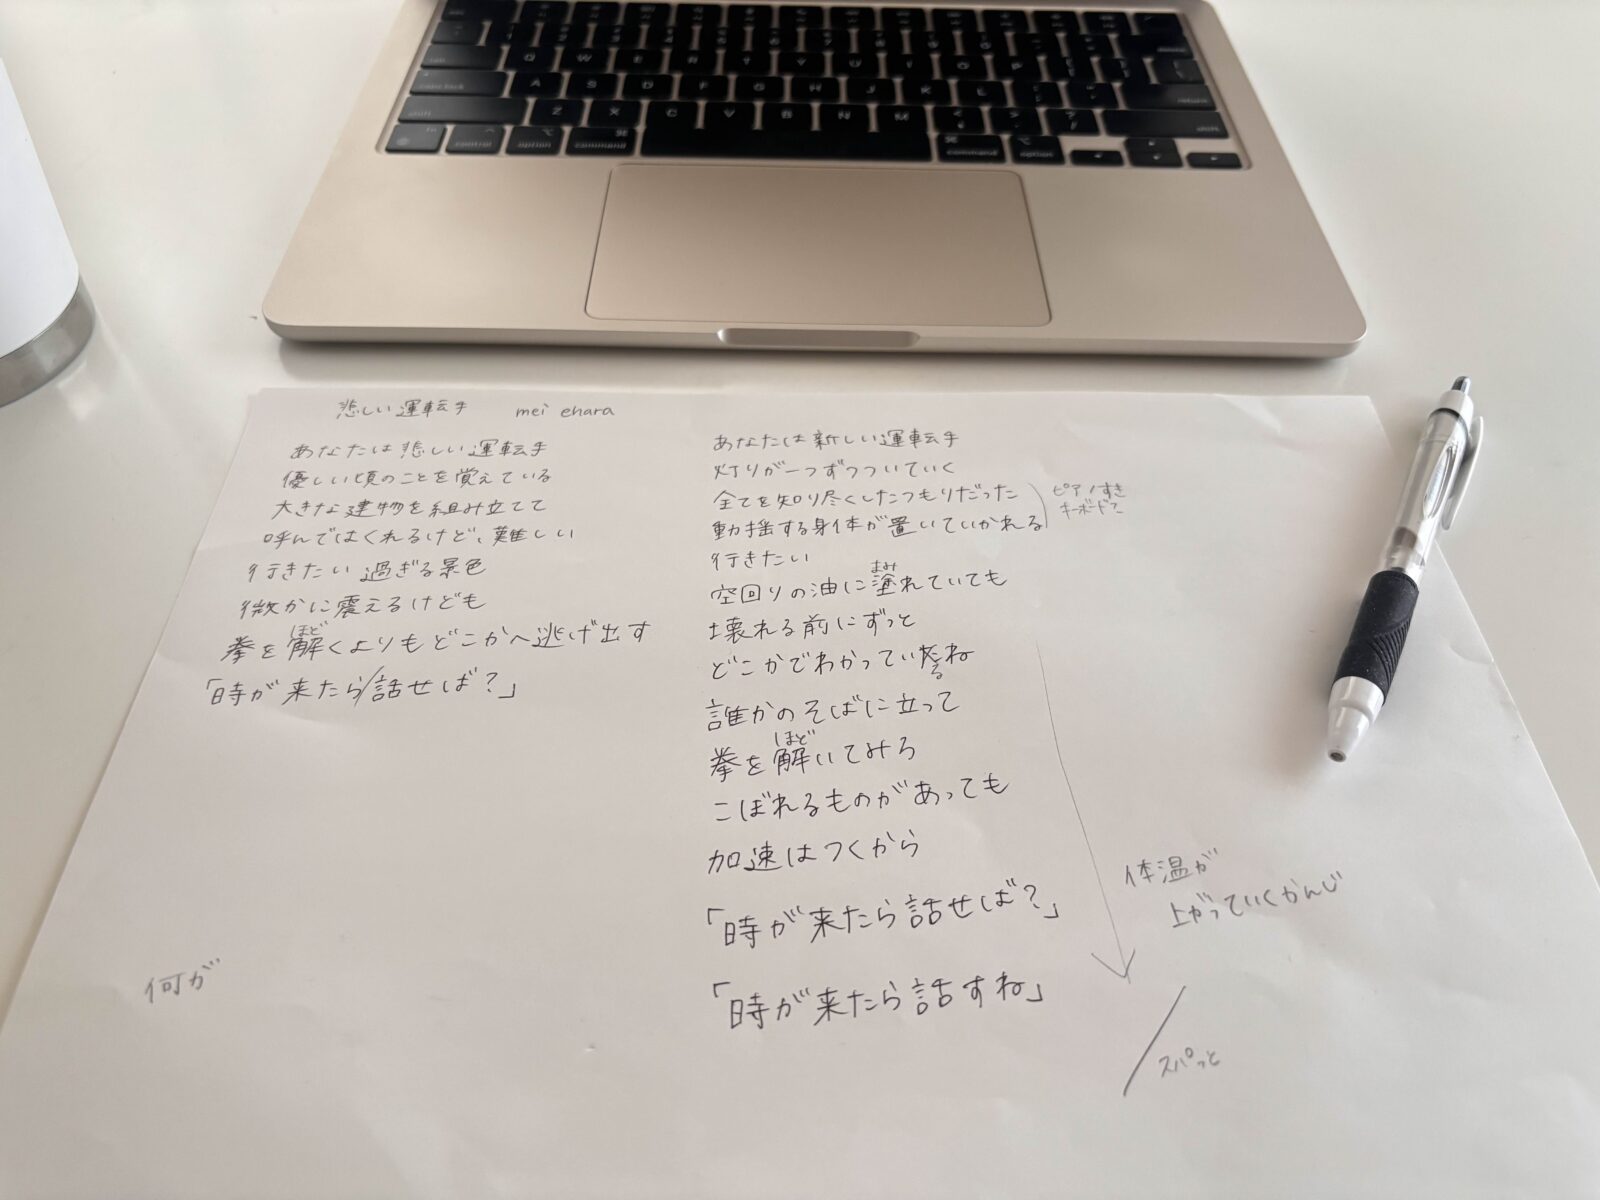 悲しい運転手 mei ehara
あなたは悲しい運転手
優しい頃のことを覚えている
大きな建物を組み立てて
呼んではくれるけど、難しい
行きたい 過ぎる景色
微かに震えるけども
拳を解くよりもどこかへ逃げ出す
ほど
「時が来たら/話せば?」
何が
あなたは新しい運転手
灯りが一つずつついていく
全てを知り尽くしたつもりだった
動揺する身体が置いていかれる
ピアノすき
キーボード?
行きたい
まみ
空回りの油に塗れていても
壊れる前にずっと
どこかでわかっていたね
る
誰かのそばに立って
ほど
拳を解いてみろ
こぼれるものがあっても
加速はつくから
「時が来たら話せば?」
「時が来たら話すね」
体温が
上がっていくかんじ
スパっと
Q W E R T Y U I O P
A S D F G H J K L
Z X C V B N M
return
shift
control option command
command option